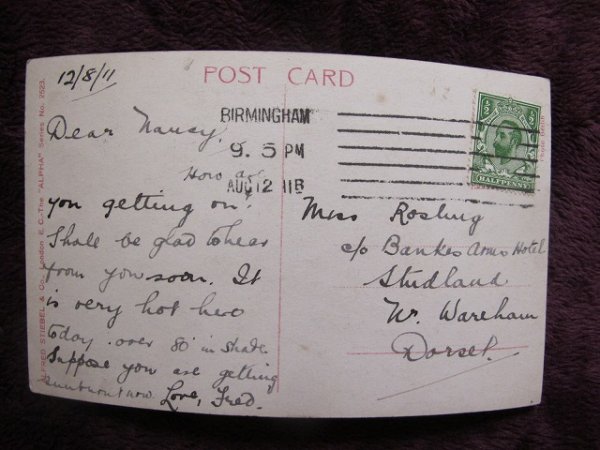 12/8/11
POST CARD
BIRMINGHAM
9. 5 PM
AUG 12 11B
½
HALFPENNY
Dear Nancy,
How are
you getting on?
Shall be glad to hear
from you soon. It
is very hot here
today. over 80° in shade.
Suppose you are getting
sunburnt now. Love, Fred.
Miss Rosling
c/o Bankes Arms Hotel
Studland
Nr. Wareham
Dorset.
ALFRED STIEBEL & Co., London E.C. The "ALPHA" Series No. 2523.